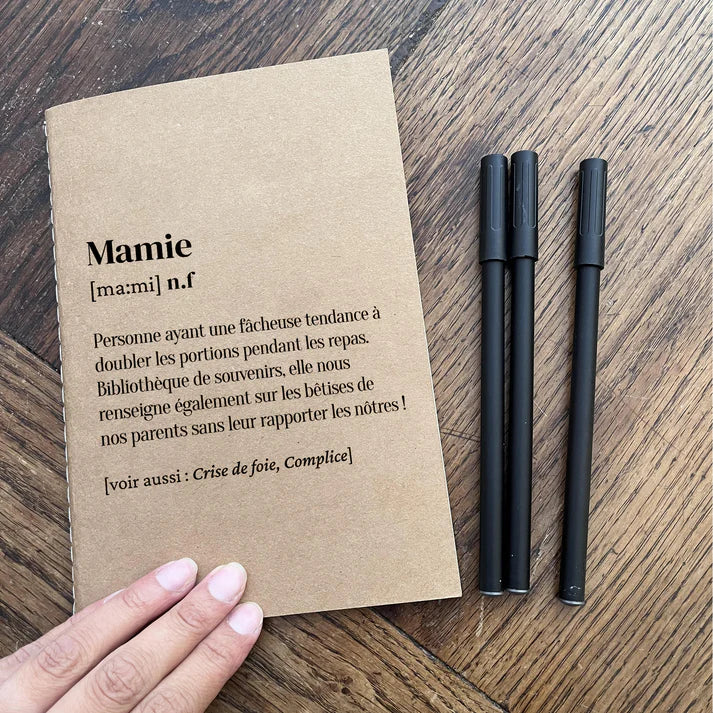 Mamie
[ma:mi] n.f
Personne ayant une fâcheuse tendance à
doubler les portions pendant les repas.
Bibliothèque de souvenirs, elle nous
renseigne également sur les bêtises de
nos parents sans leur rapporter les nôtres !
[voir aussi : Crise de foie, Complice]